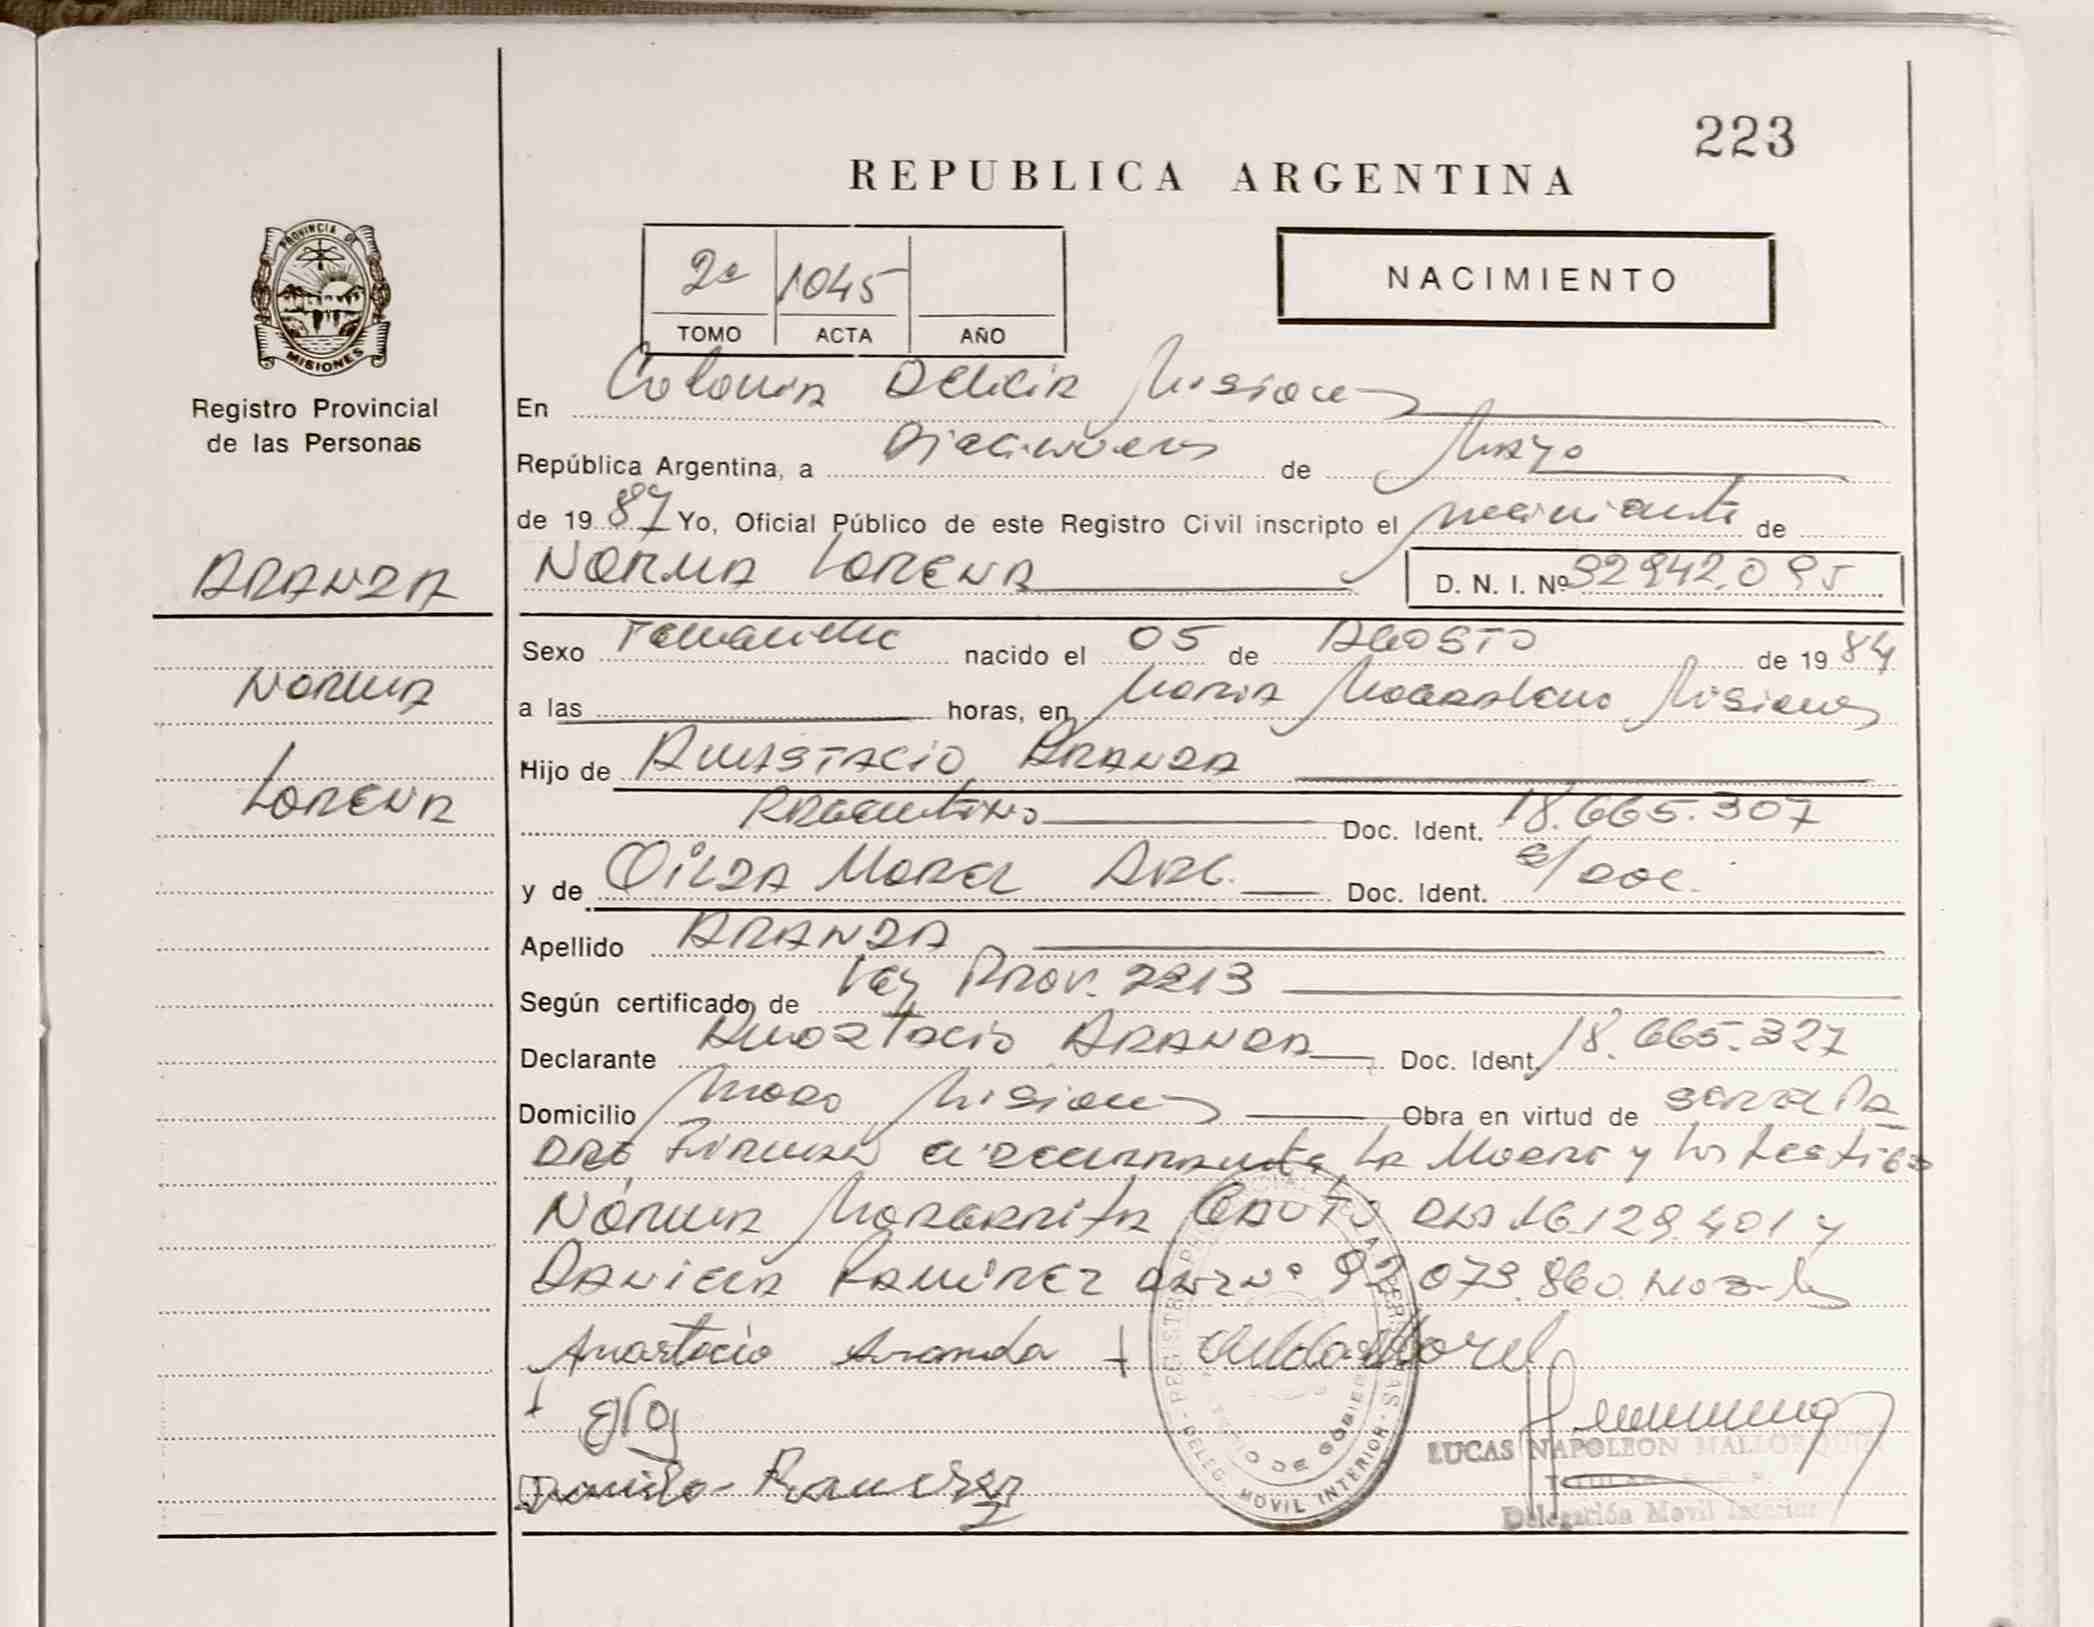 223
REPUBLICA ARGENTINA
2º 1045
TOMO ACTA AÑO
NACIMIENTO
PROVINCIA DE MISIONES
Registro Provincial
de las Personas
En Colonia Delicia Misiones
República Argentina, a Diecinueve de Mayo
de 1987 Yo, Oficial Público de este Registro Civil inscripto el nacimiento de
ARANDA
NORMA LORENA D. N. I. Nº 92942.095
Sexo Femenino nacido el 05 de AGOSTO de 1984
NORMA
a las horas, en Maria Magdalena Misiones
LORENA
Hijo de ANASTACIO ARANDA
Argentino Doc. Ident. 18.665.307
y de Gilda Morel ARG. Doc. Ident. s/doc.
Apellido ARANDA
Según certificado de Ley Prov. 2213
Declarante Anastacio ARANDA Doc. Ident. 18.665.327
Domicilio Misiones Obra en virtud de
Firman la Madre y los testigos
NORMA Margarita 16.129.401 y
Daniela RAMIREZ Nº 92.073.860
Anastacio Aranda Morel
Ramirez
REGISTRO PROVINCIAL DE LAS PERSONAS
MINISTERIO DE GOBIERNO
DELEG. MOVIL INTERIOR
LUCAS NAPOLEON MALLORQUIN
Delegación Movil Interior